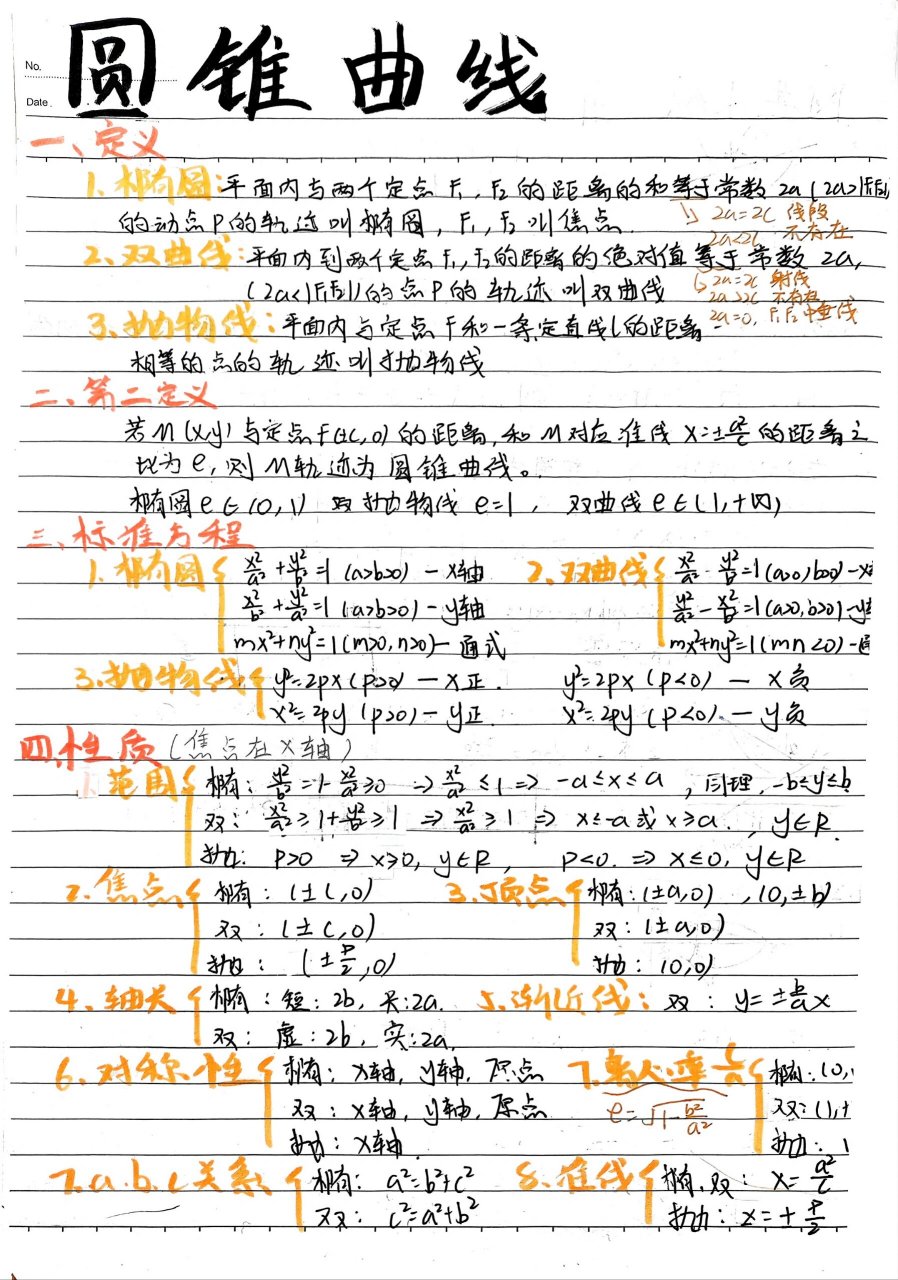 No.
Date
圆锥曲线
一、定义
1. 椭圆:平面内与两个定点 F₁, F₂的距离的和等于常数 2a (2a>|F₁F₂|)
的动点P的轨迹叫椭圆, F₁, F₂叫焦点.
2a=2c 线段
2a<2c 不存在
2、双曲线:平面内到两个定点F₁,F₂的距离的绝对值等于常数 2a,
(2a<|F₁F₂|)的点P的轨迹叫双曲线
2a=2c 射线
2a>2c 不存在
2a=0, F₁F₂中垂线
3、抛物线:平面内与定点F和一条定直线l的距离
相等的点的轨迹叫抛物线
二、第二定义
若M(x,y)与定点F(±c,0)的距离,和M对应准线 x=±a²/c的距离之
比为e,则M轨迹为圆锥曲线。
椭圆e∈(0,1) 抛物线 e=1, 双曲线e∈(1,+∞)
三、标准方程
1. 椭圆 { x²/a²+y²/b²=1 (a>b>0) - x轴
x²/b²+y²/a²=1 (a>b>0) - y轴
mx²+ny²=1(m>0,n>0) - 通式
2、双曲线 { x²/a²-y²/b²=1(a>0,b>0) - x
y²/a²-x²/b²=1(a>0,b>0) - y
mx²+ny²=1(mn<0) - 通
3.抛物线 { y²=2px(p>0) - x正. y²=2px(p<0) - x负
x²=2py(p>0) - y正. x²=2py(p<0) - y负
四.性质(焦点在x轴)
1.范围 { 椭:y²/b²=1-x²/a²≥0 ⇒x²/a²≤1⇒ -a≤x≤a, 同理, -b≤y≤b
双:x²/a²≥1+y²/b²≥1 ⇒x²/a²≥1 ⇒ x≤-a或x≥a., y∈R.
抛: p>0 ⇒x≥0, y∈R, p<0. ⇒x≤0, y∈R
2.焦点 { 椭:(±c,0)
双:(±c,0)
抛:(±p/2,0)
3.顶点 { 椭:(±a,0) ,(0,±b)
双:(±a,0)
抛:(0,0)
4、轴长 { 椭:短:2b, 长:2a.
双:虚:2b, 实:2a.
5、渐近线:双:y=±b/a x
6、对称性 { 椭:x轴, y轴, 原点
双:x轴, y轴, 原点
抛:x轴.
7.离心率 c/a { 椭:(0,
双:(1,+
抛:1
e=√1-b²/a²
7.a.b.c关系 { 椭: a²=b²+c²
双: c²=a²+b²
8.准线 { 椭,双: x=a²/c
抛:x=±p/2